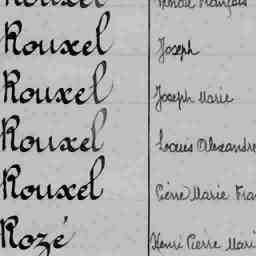 Rouxel Joseph
Rouxel Joseph Marie
Rouxel Louis Alexandre
Rouxel Pierre Marie Fra
Rozé Henri Pierre Mari